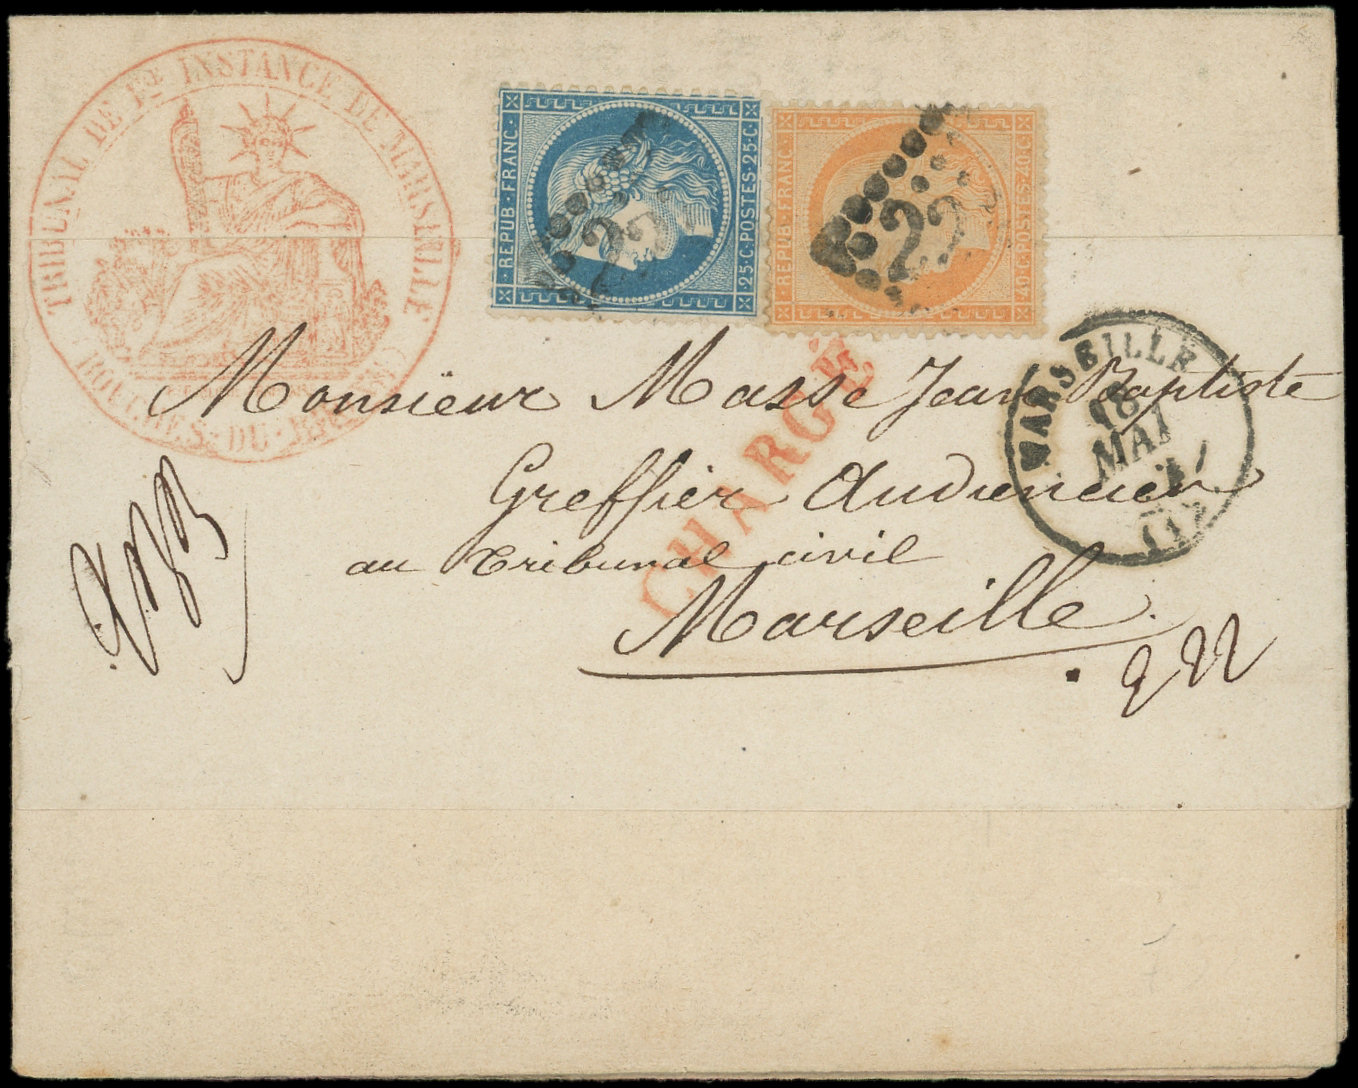 TRIBUNAL DE 1RE INSTANCE DE MARSEILLE
BOUCHES-DU-RHÔNE
REPUB·FRANC·
25·C·POSTES·25·C
REPUB·FRANC·
40·C·POSTES·40·C
22
CHARGÉ
MARSEILLE
18
MAI
(12)
Monsieur Masse Jean Baptiste
Greffier Audiencier
au Tribunal civil
Marseille.
222